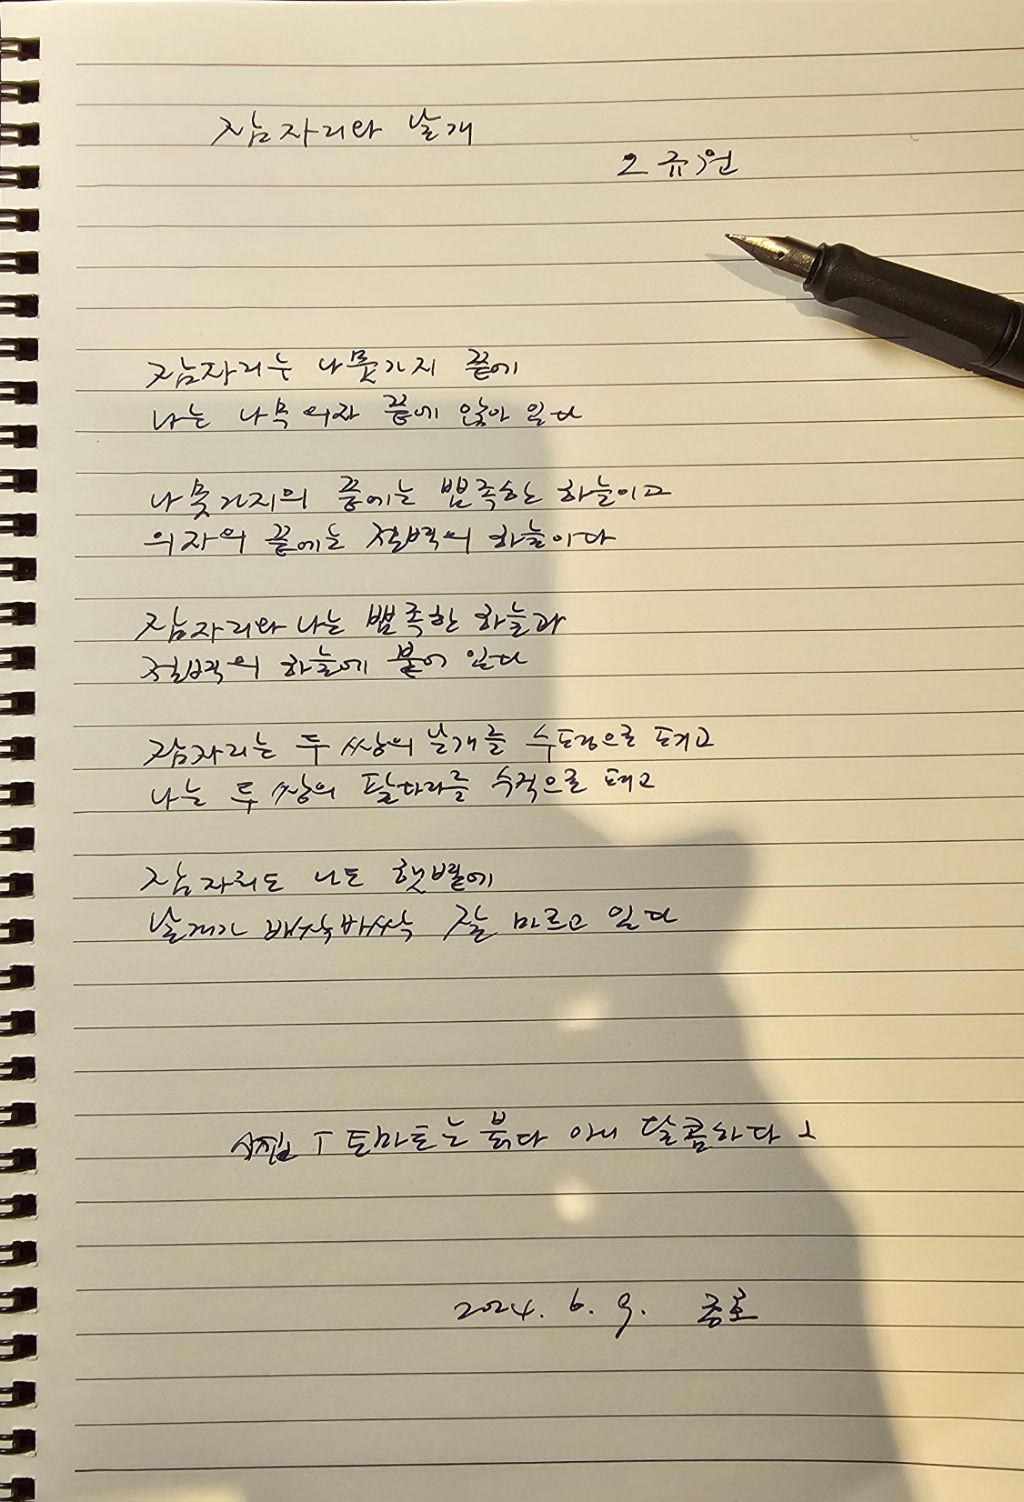 잠자리와 날개
오규원
잠자리는 나뭇가지 끝에
나는 나무 의자 끝에 앉아 있다
나뭇가지의 끝에는 뾰족한 하늘이고
의자의 끝에는 절벽의 하늘이다
잠자리와 나는 뾰족한 하늘과
절벽의 하늘에 붙어 있다
잠자리는 두 쌍의 날개를 수평으로 펴고
나는 두 쌍의 팔다리를 수직으로 펴고
잠자리도 나도 햇볕에
날개가 바싹바싹 잘 마르고 있다
시집 「토마토는 붉다 아니 달콤하다」
2024. 6. 9. 종로